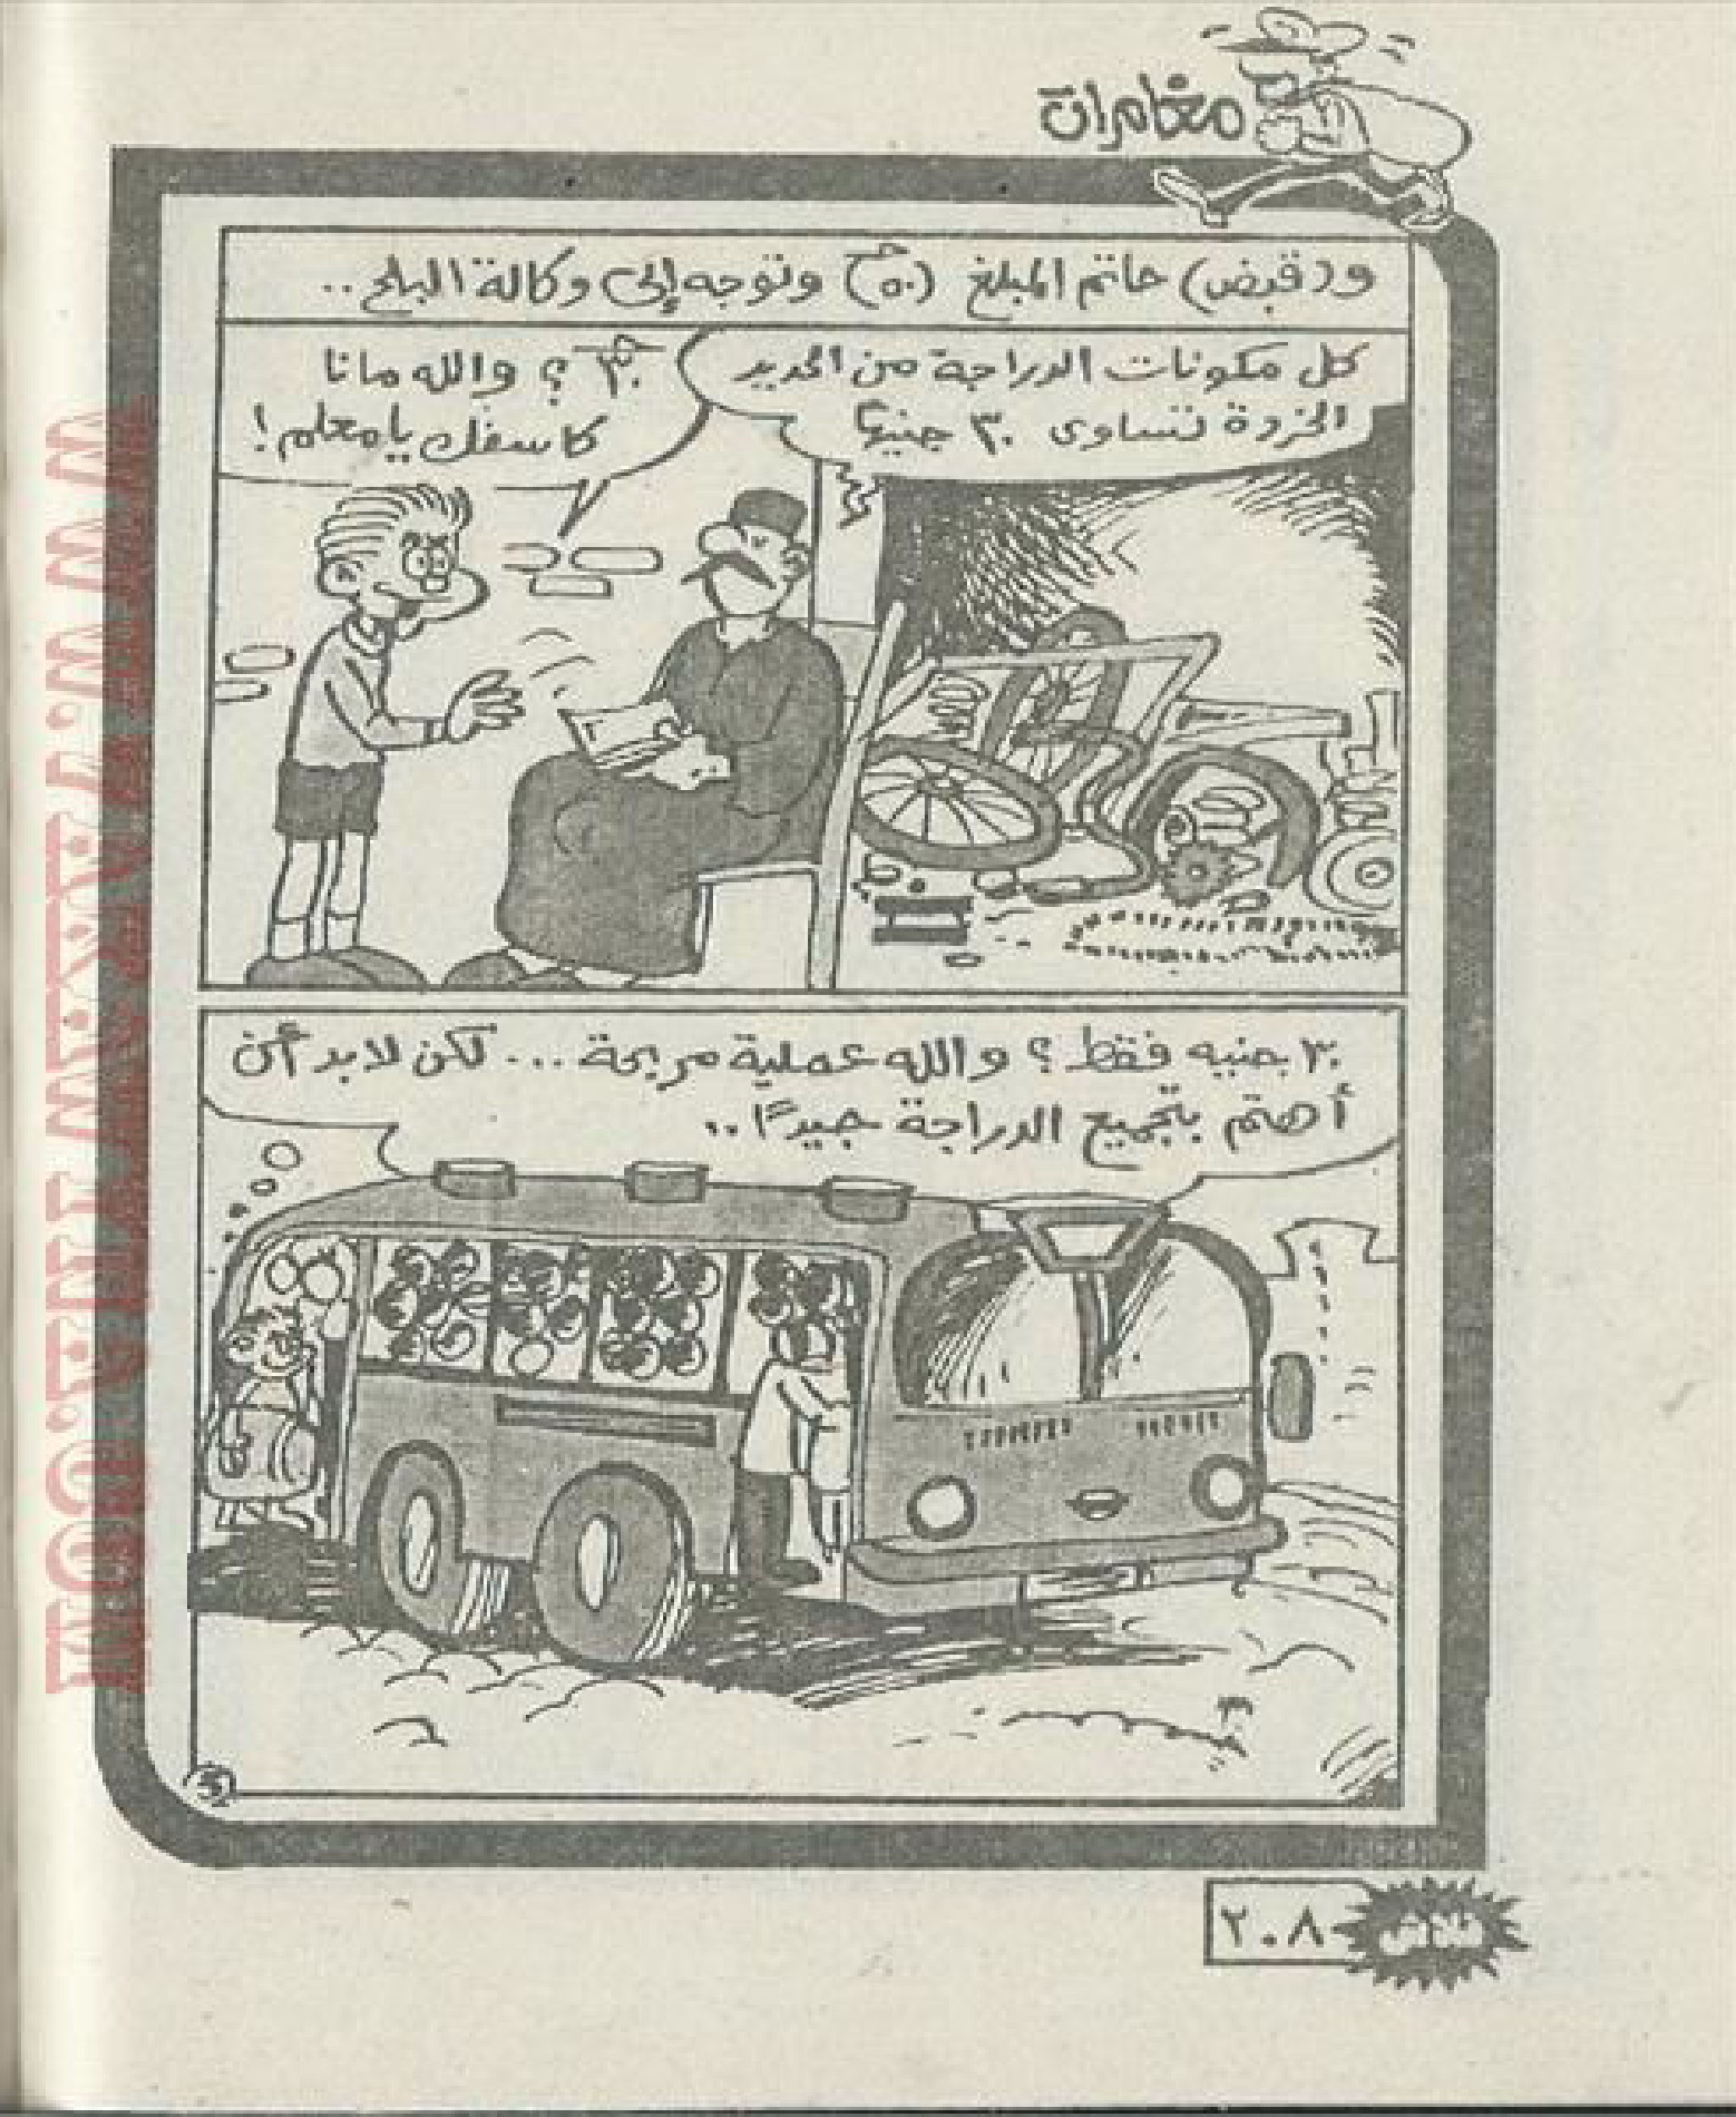 مغامرات
و(قبض) حاتم المبلغ (٥٠ج) وتوجه إلى وكالة البلح..
كل مكونات الدراجة من الحديد
الخردة تساوى ٣٠ جنيهًا
٣٠ج؟ والله مانا
كاسفك يا معلم!
٣٠ جنيه فقط؟ والله عملية مربحة... لكن لابد أن
أهتم بتجميع الدراجة جيدًا..
٢٠٨
فلاش
WWW.DVD4ARAB.COM